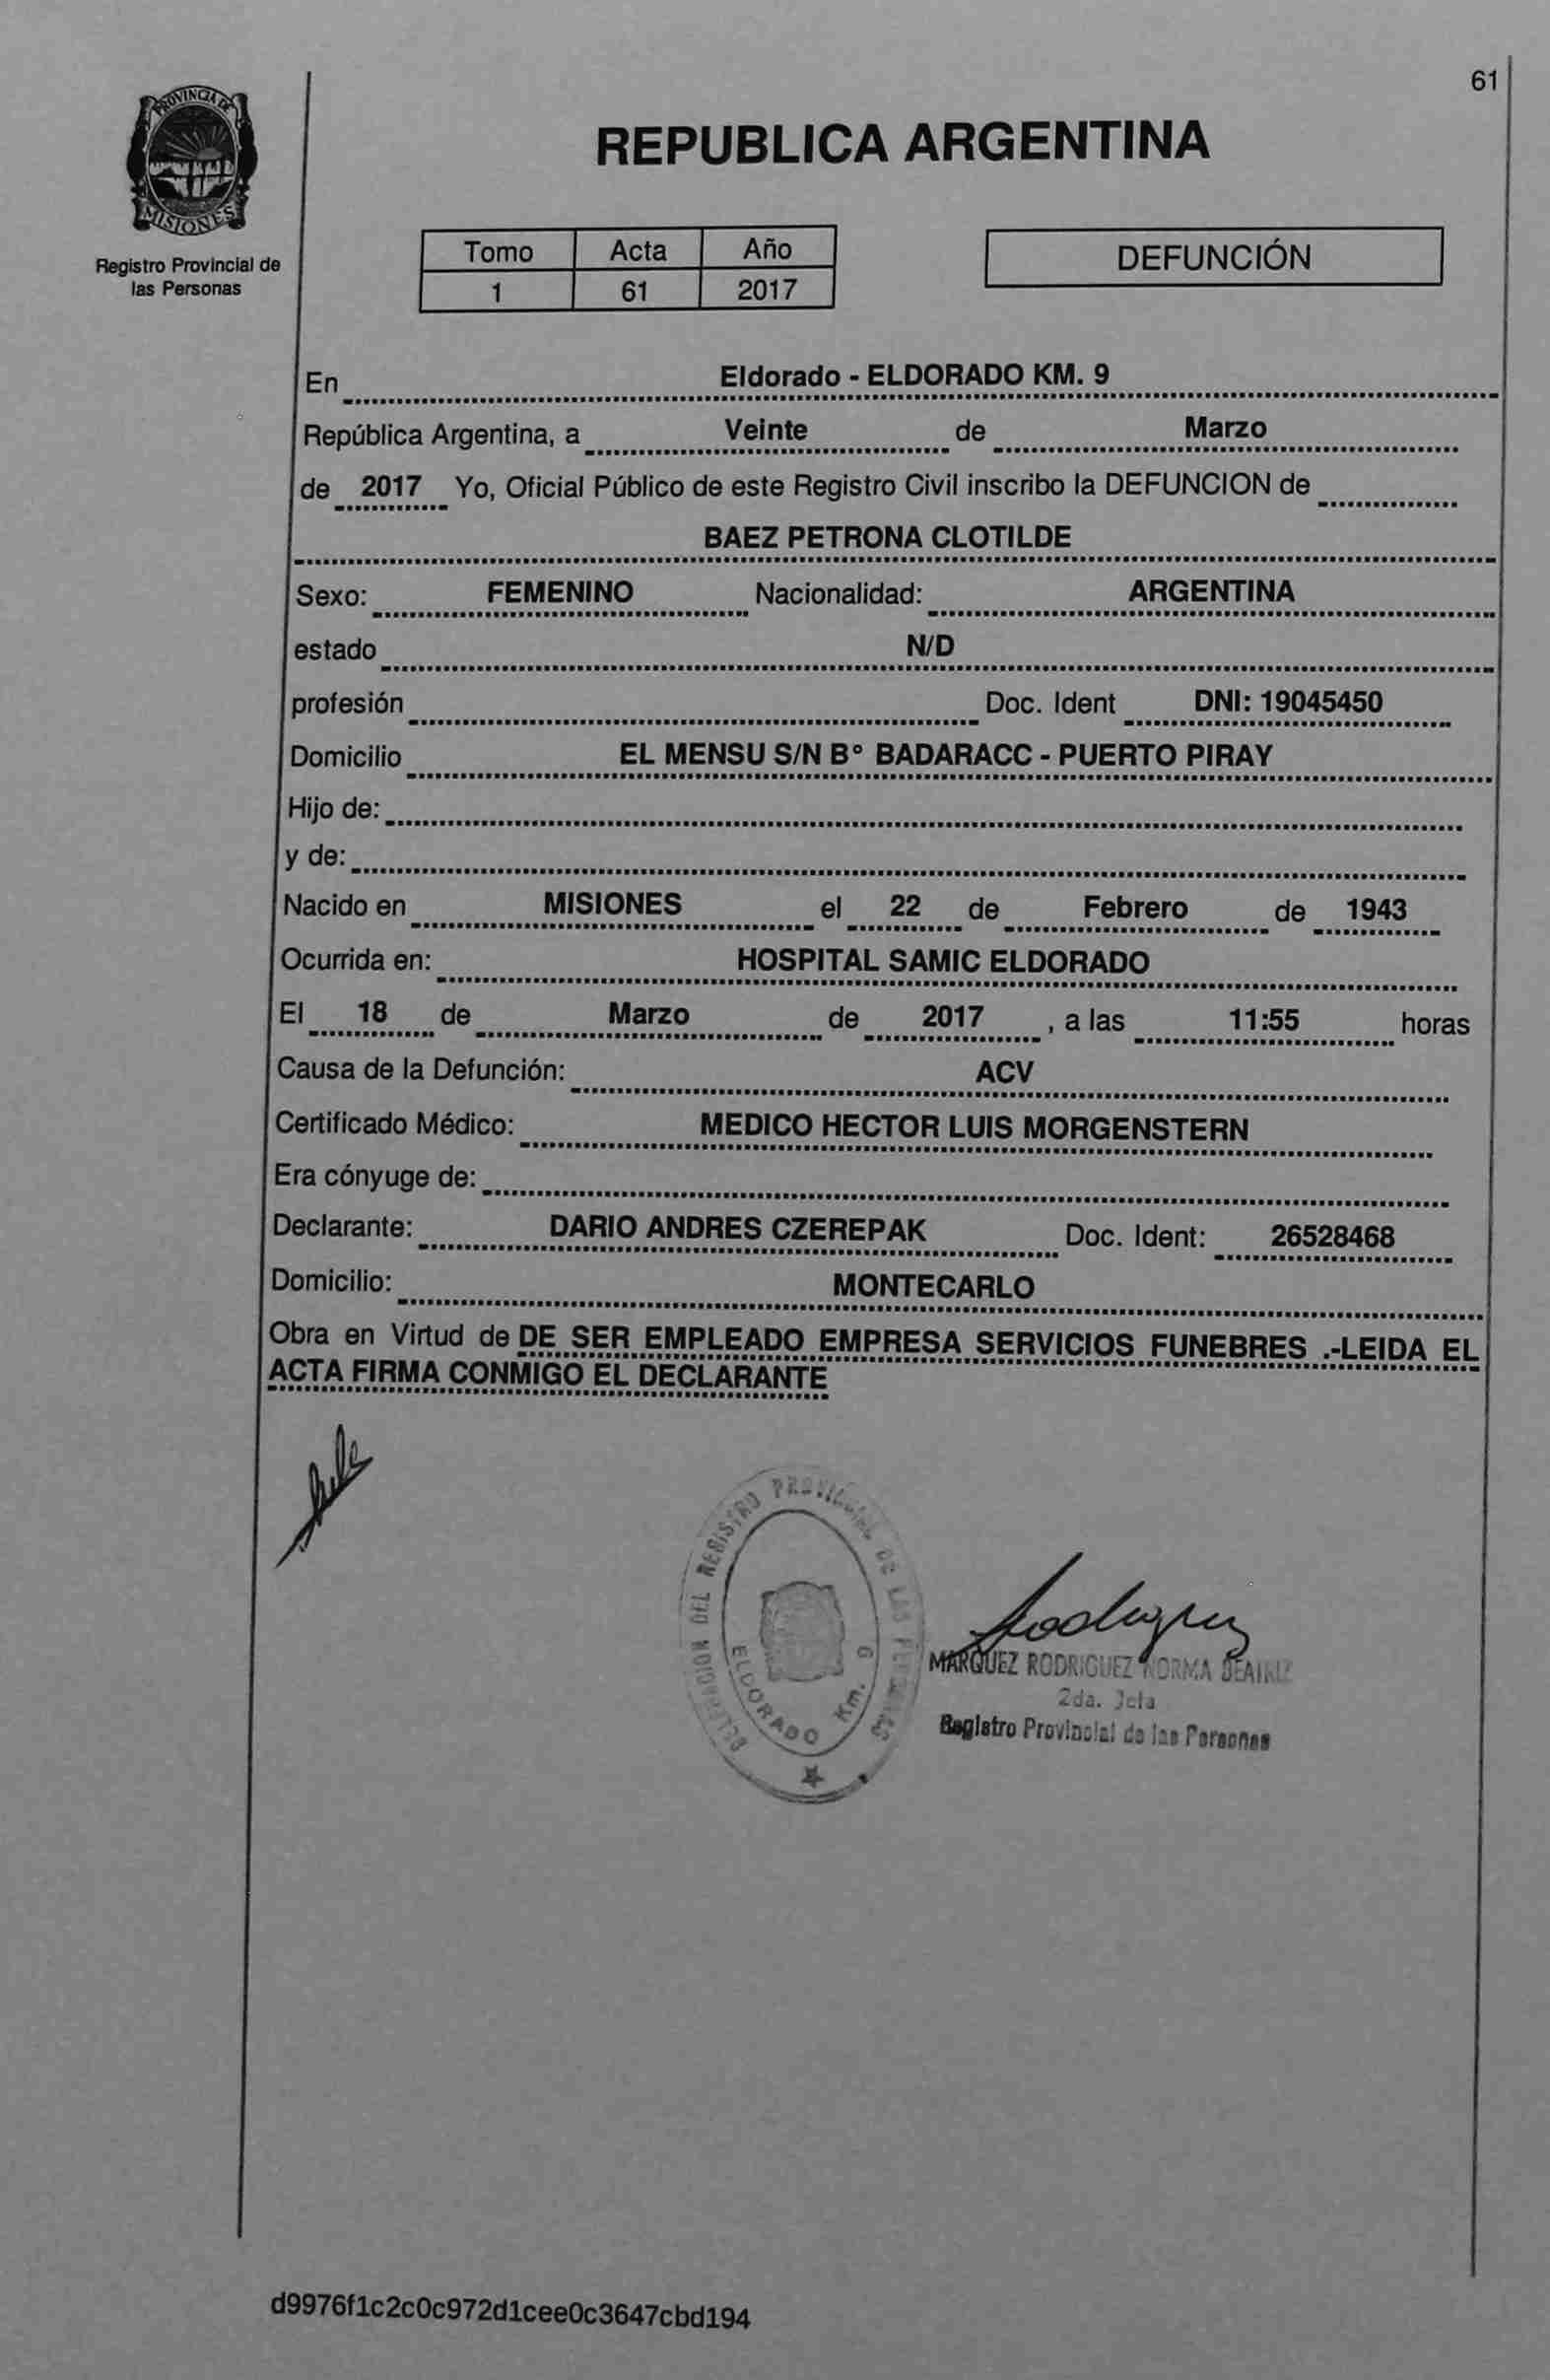 61
PROVINCIA DE
MISIONES
Registro Provincial de
las Personas
REPUBLICA ARGENTINA
Tomo Acta Año
1 61 2017
DEFUNCIÓN
En Eldorado - ELDORADO KM. 9
República Argentina, a Veinte de Marzo
de 2017 Yo, Oficial Público de este Registro Civil inscribo la DEFUNCION de
BAEZ PETRONA CLOTILDE
Sexo: FEMENINO Nacionalidad: ARGENTINA
estado N/D
profesión Doc. Ident DNI: 19045450
Domicilio EL MENSU S/N B° BADARACC - PUERTO PIRAY
Hijo de:
y de:
Nacido en MISIONES el 22 de Febrero de 1943
Ocurrida en: HOSPITAL SAMIC ELDORADO
El 18 de Marzo de 2017 , a las 11:55 horas
Causa de la Defunción: ACV
Certificado Médico: MEDICO HECTOR LUIS MORGENSTERN
Era cónyuge de:
Declarante: DARIO ANDRES CZEREPAK Doc. Ident: 26528468
Domicilio: MONTECARLO
Obra en Virtud de DE SER EMPLEADO EMPRESA SERVICIOS FUNEBRES .-LEIDA EL
ACTA FIRMA CONMIGO EL DECLARANTE
DELEGACION DEL REGISTRO PROVINCIAL DE LAS PERSONAS
ELDORADO Km. 9
MARQUEZ RODRIGUEZ NORMA BEATRIZ
2da. Jefa
Registro Provincial de las Personas
d9976f1c2c0c972d1cee0c3647cbd194